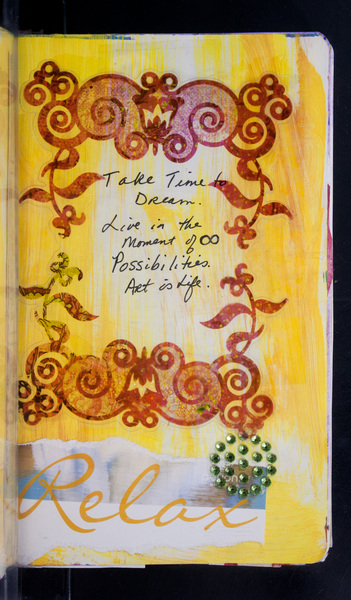 Take Time to
Dream.
Live in the
Moment of ∞
Possibilities.
Art is Life.
Relax